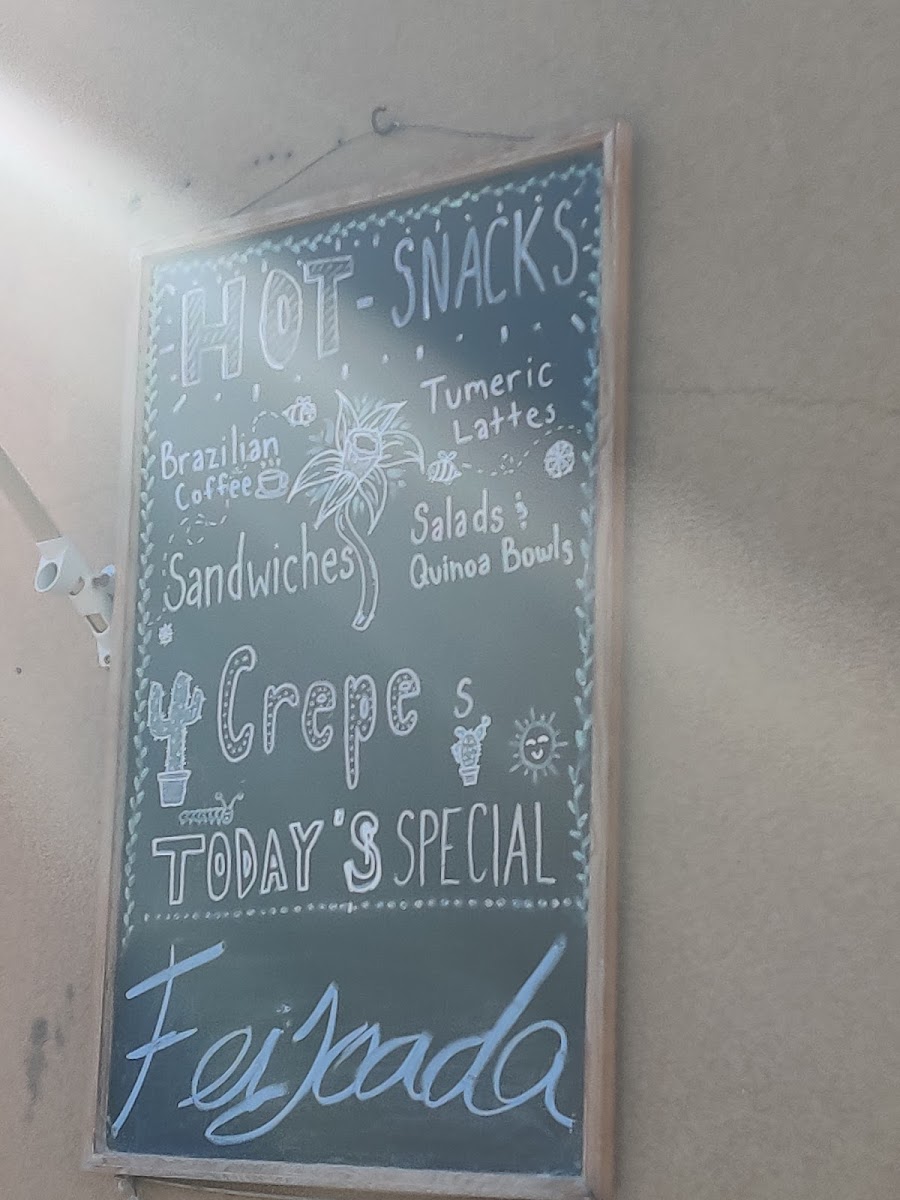 HOT - SNACKS
Tumeric
Lattes
Brazilian
Coffee
Salads &
Quinoa Bowls
Sandwiches
Crepes
TODAY'S SPECIAL
Feijoada